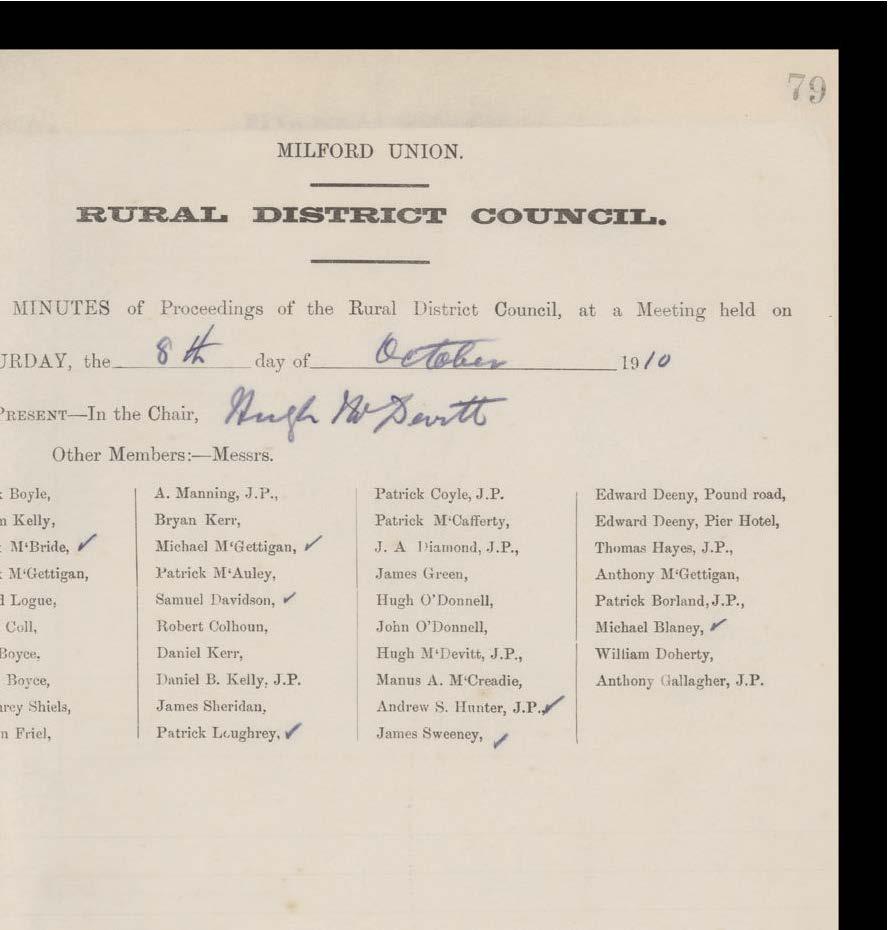 79
MILFORD UNION.
RURAL DISTRICT COUNCIL.
MINUTES of Proceedings of the Rural District Council, at a Meeting held on
URDAY, the 8th day of October 1910
PRESENT—In the Chair, Hugh McDevitt
Other Members:—Messrs.
k Boyle,
n Kelly,
k M‘Bride, ✓
k M‘Gettigan,
d Logue,
Coll,
Boyce,
Boyce,
rey Shiels,
n Friel,
A. Manning, J.P.,
Bryan Kerr,
Michael M‘Gettigan, ✓
Patrick M‘Auley,
Samuel Davidson, ✓
Robert Colhoun,
Daniel Kerr,
Daniel B. Kelly, J.P.
James Sheridan,
Patrick Loughrey, ✓
Patrick Coyle, J.P.
Patrick M‘Cafferty,
J. A Diamond, J.P.,
James Green,
Hugh O’Donnell,
John O’Donnell,
Hugh M‘Devitt, J.P.,
Manus A. M‘Creadie,
Andrew S. Hunter, J.P., ✓
James Sweeney, ✓
Edward Deeny, Pound road,
Edward Deeny, Pier Hotel,
Thomas Hayes, J.P.,
Anthony M‘Gettigan,
Patrick Borland, J.P.,
Michael Blaney, ✓
William Doherty,
Anthony Gallagher, J.P.